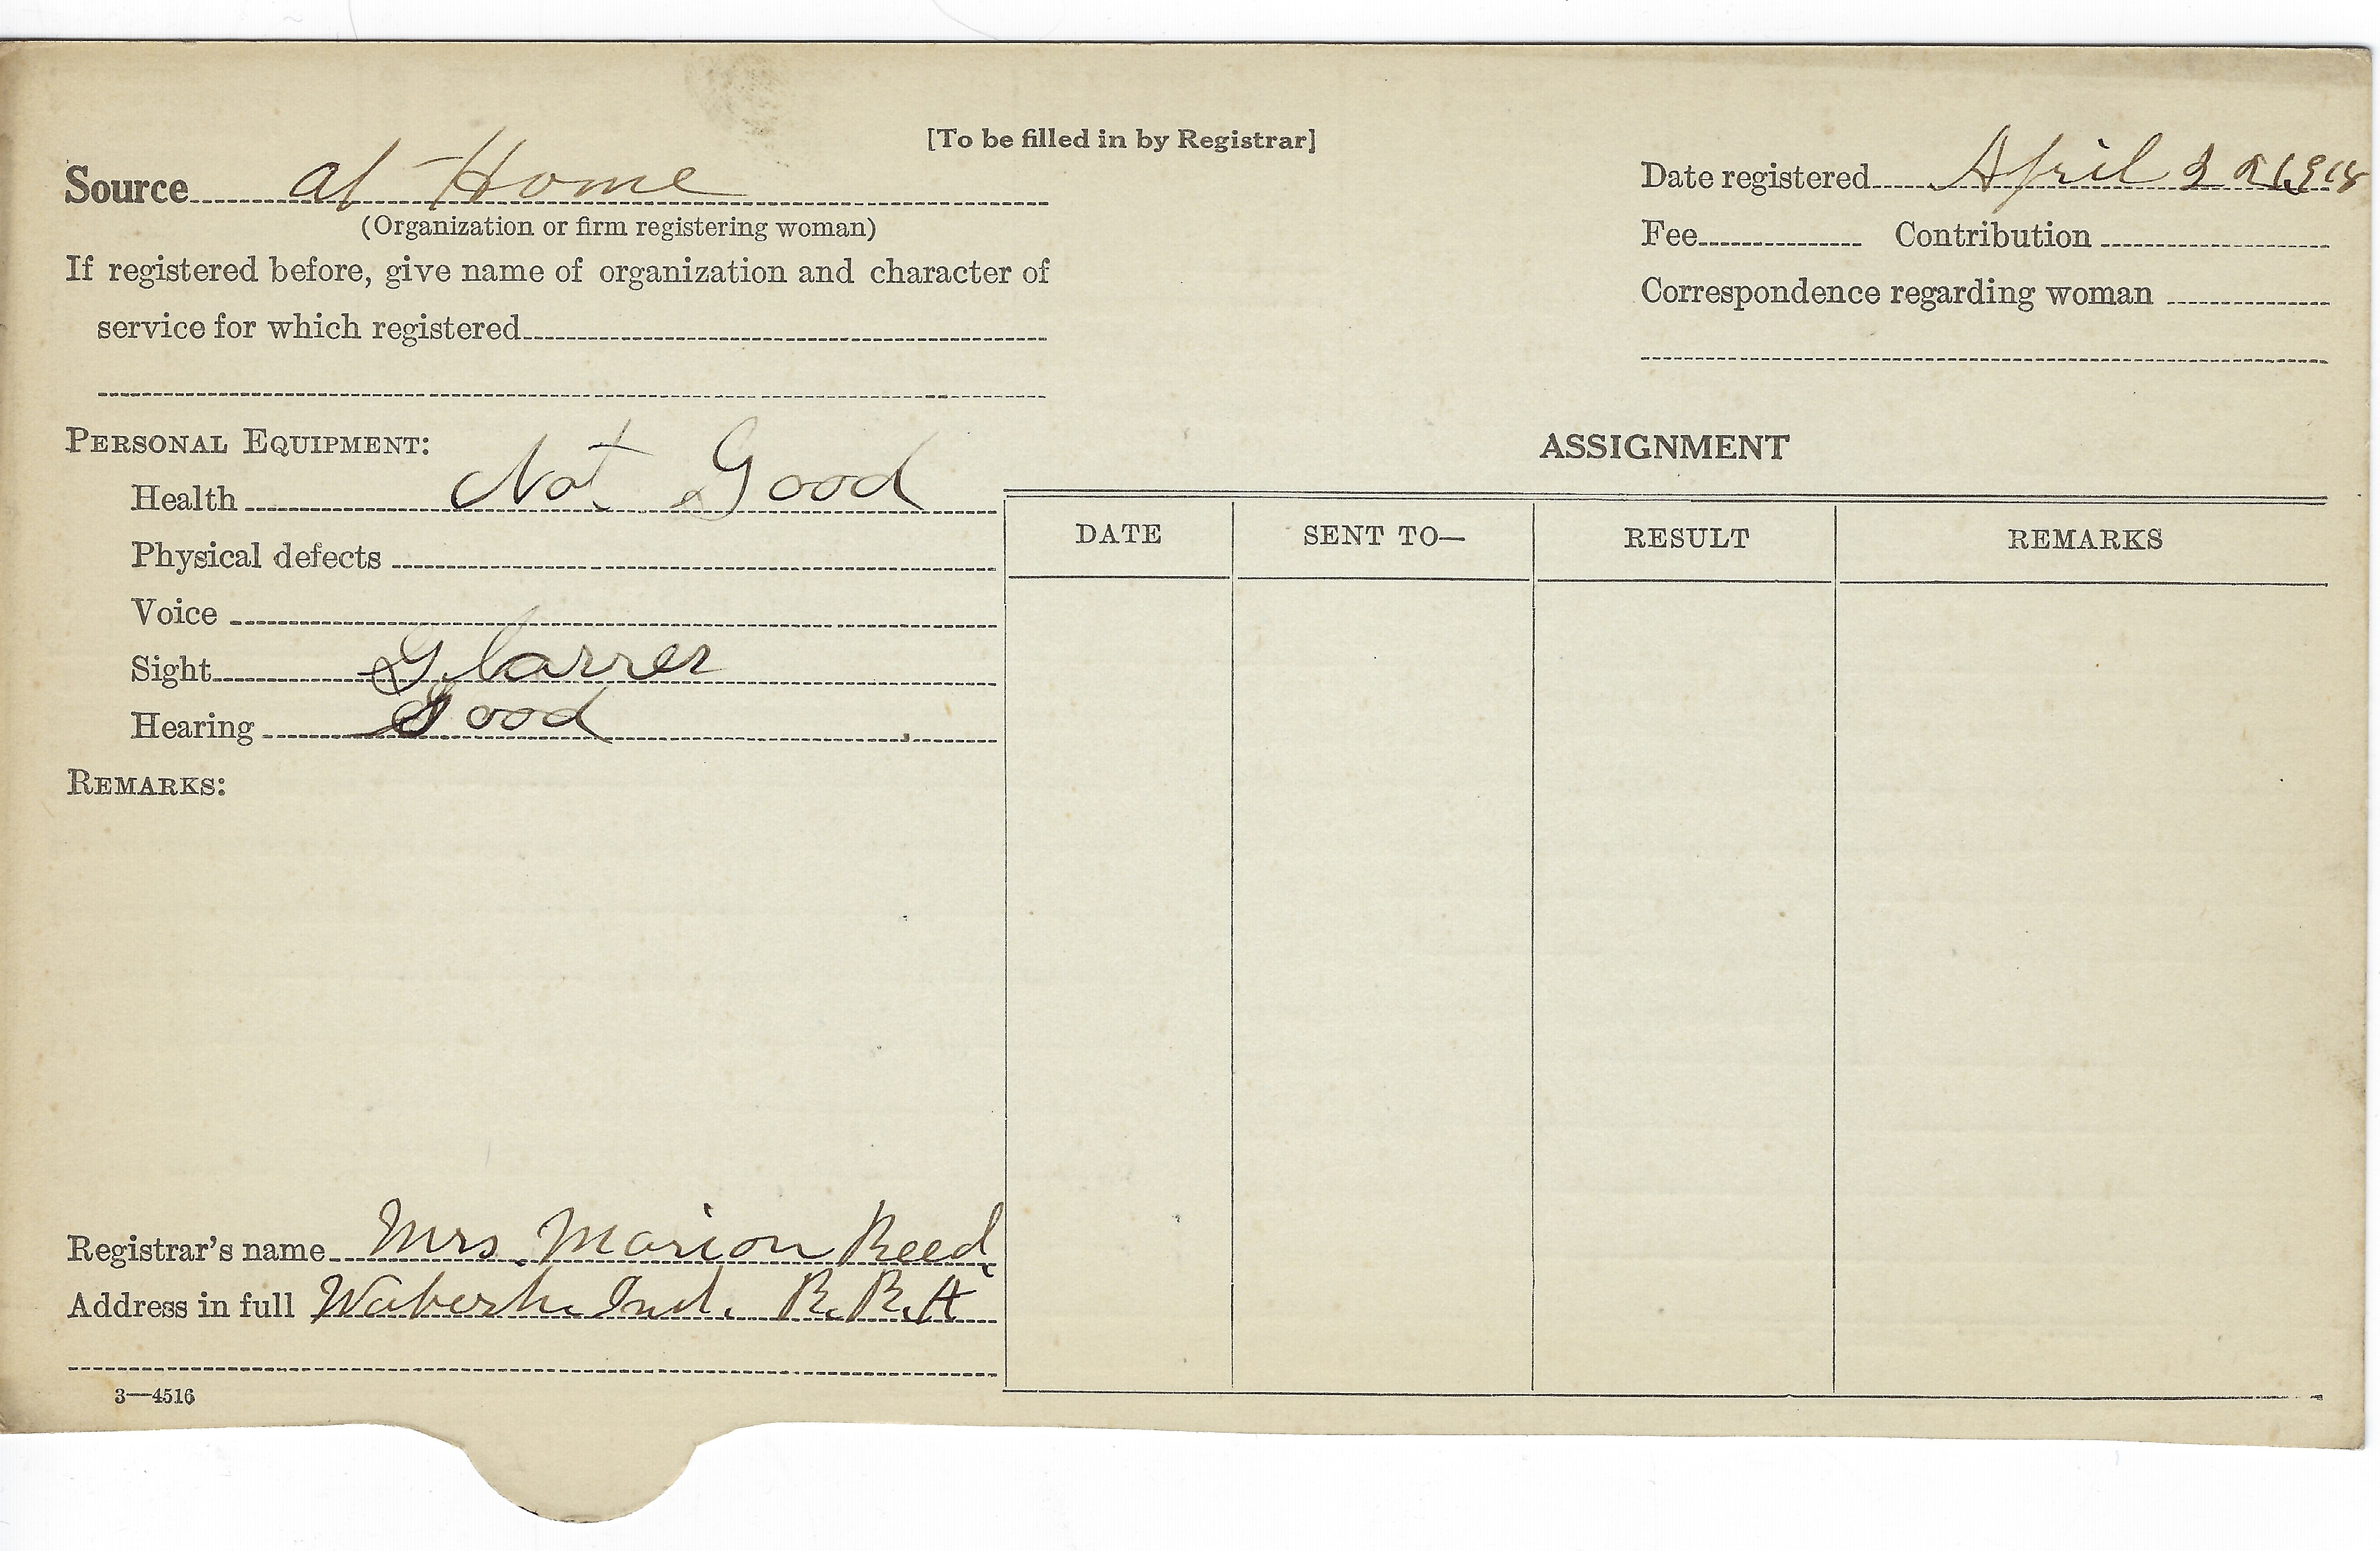 [To be filled in by Registrar]
Source at Home
(Organization or firm registering woman)
If registered before, give name of organization and character of
service for which registered
Date registered April 22 1918
Fee Contribution
Correspondence regarding woman
PERSONAL EQUIPMENT:
Health Not Good
Physical defects
Voice
Sight
Hearing Good
REMARKS:
Registrar's name Mrs Marion Reed
Address in full Wabash Ind. R.R.
3—4516
ASSIGNMENT
DATE SENT TO— RESULT REMARKS